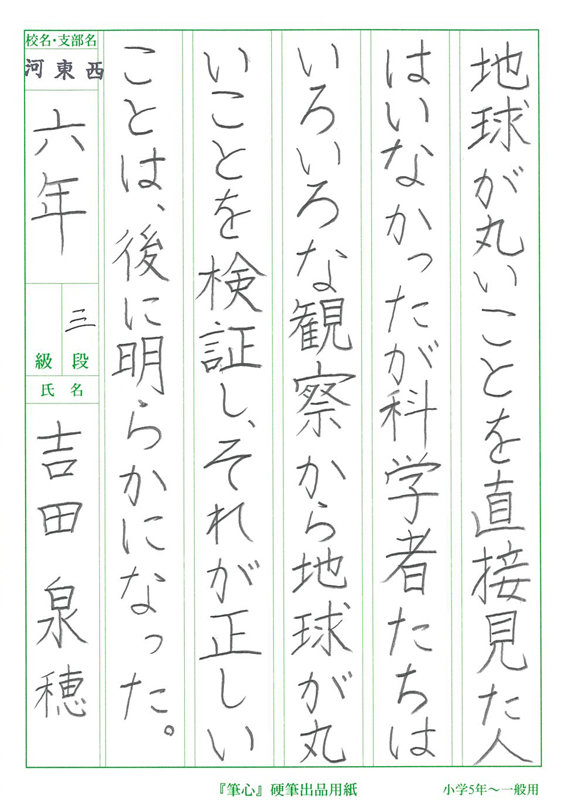 地球が丸いことを直接見た人
はいなかったが科学者たちは
いろいろな観察から地球が丸
いことを検証し、それが正しい
ことは、後に明らかになった。
校名・支部名
河東西
六年
三段
級
氏名
吉田泉穂
『筆心』硬筆出品用紙
小学5年～一般用